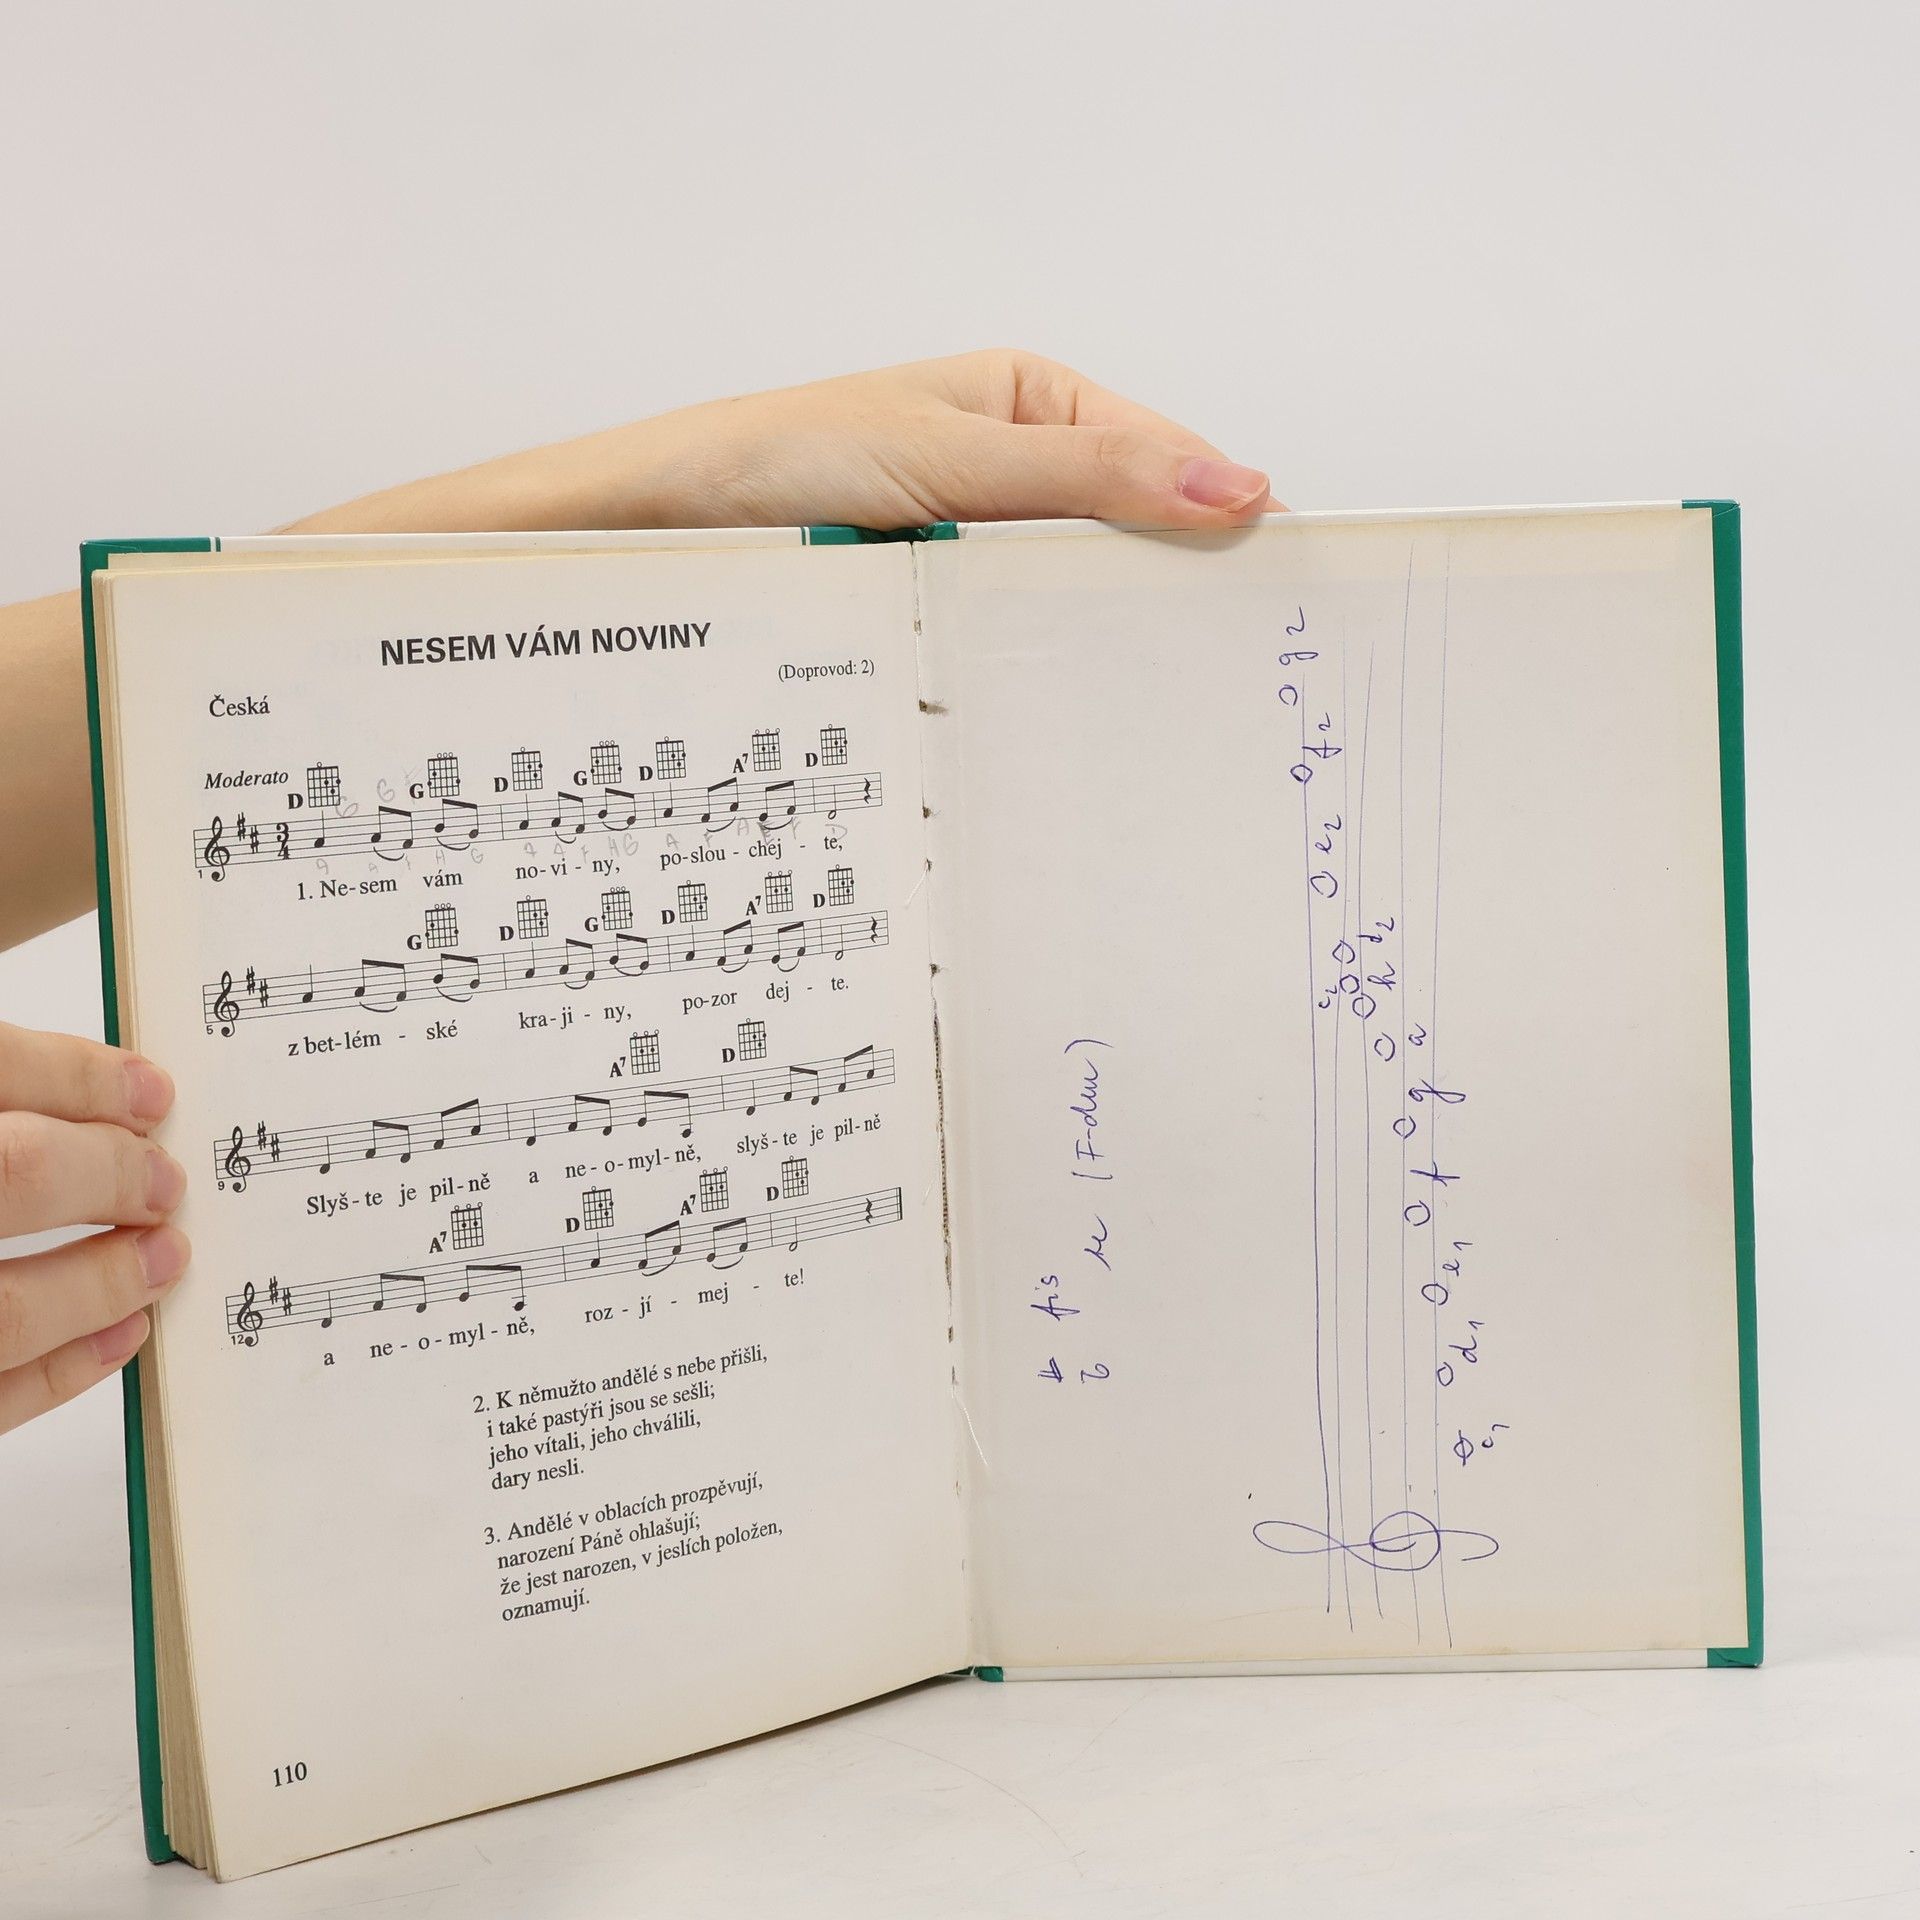 NESEM VÁM NOVINY
(Doprovod: 2)
Česká
Moderato
D G D G D A7 D
3
4
1
1. Ne-sem vám no-vi - ny, po-slou - chej - te,
G D G D A7 D
5
z bet-lém - ské kra-ji - ny, po-zor dej - te.
A7 D
9
Slyš-te je pil-ně a ne-o-myl-ně, slyš-te je pil-ně
A7 D A7 D
12
a ne-o-myl-ně, roz - jí - mej - te!
2. K němužto andělé s nebe přišli,
i také pastýři jsou se sešli;
jeho vítali, jeho chválili,
dary nesli.
3. Andělé v oblacích prozpěvují,
narození Páně ohlašují;
že jest narozen, v jeslích položen,
oznamují.
110
# fis
(F-dur)
c1 d1 e1 f g a h c2 d2 e2 f2 g2